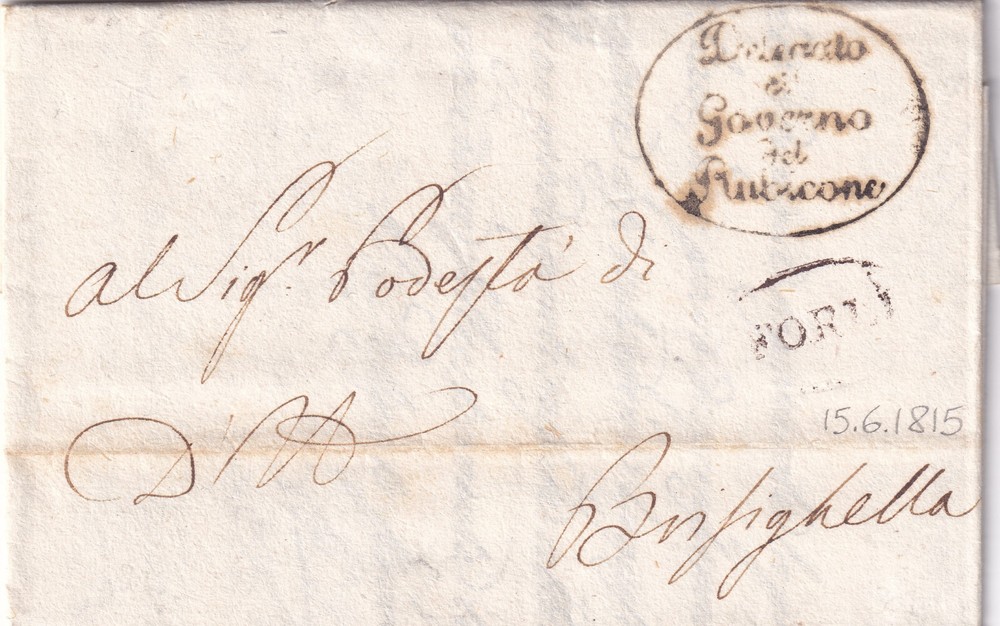 Delegato
di
Governo
del
Rubicone
Al Sig.r Podestà di
FORLI
15.6.1815
Brisighella